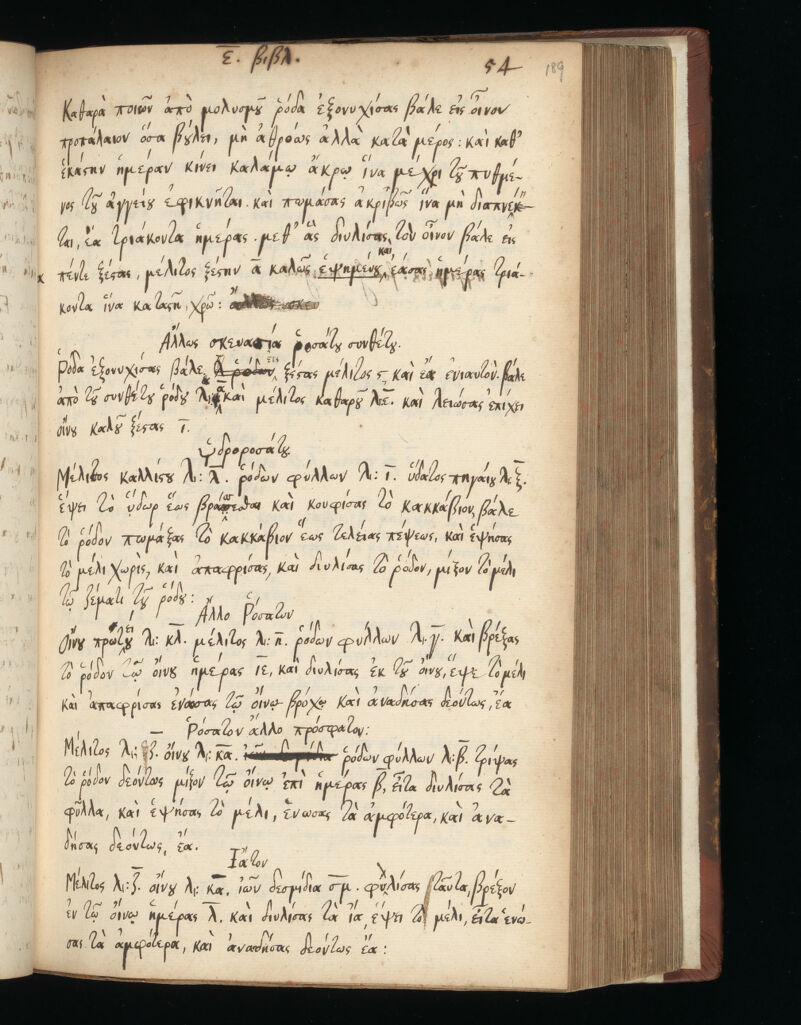 ε. βιβλ. 54 189
Καθαρὰ ποιῶν ἀπὸ μολυσμοῦ ῥόδα ἐξονυχίσας βάλε εἰς οἶνον
προπάλαιον ὅσα βούλει, μὴ ἀθρόως ἀλλὰ κατὰ μέρος: καὶ καθ'
ἑκάστην ἡμέραν κίνει καλάμῳ ἄκρῳ ἵνα μέχρι τοῦ πυθμέ-
νος τοῦ ἀγγείου ἐφικνῆται. καὶ πωμάσας ἀκριβῶς ἵνα μὴ
ται, ἔα τριάκοντα ἡμέρας. μεθ' ἃς διυλίσας τὸν οἶνον βάλε εἰς
πέντε ξέστας, μέλιτος ξέστην α καλῶς ἑψημένου, καὶ ἐάσας ἡμέρας τριά-
κοντα ἵνα καταστῇ, χρῶ:
Ἄλλως σκευασία ῥοσάτου συνθέτου.
Ῥόδα ἐξονυχίσας βάλε εἰς ξέστας μέλιτος ϛ καὶ ἔα ἐνιαυτὸν. βάλε
ἀπὸ τοῦ συνθέτου ῥόδου λι: α καὶ μέλιτος καθαροῦ λι: ε. καὶ λειώσας ἐπίχει
οἴνου καλοῦ ξέστας ι.
Ὑδροροσάτου
Μέλιτος καλλίστου λι: λ. ῥόδων φύλλων λι: ι. ὕδατος πηγαίου λι: ξ.
ἕψει τὸ ὕδωρ ἕως καὶ κουφίσας τὸ κακκάβιον, βάλε
τὸ ῥόδον πωμάξας τὸ κακκάβιον ἕως τελείας πέψεως, καὶ ἑψήσας
τὸ μέλι χωρὶς, καὶ ἀπαφρίσας, καὶ διυλίσας τὸ ῥόδον, μίξον τὸ μέλι
τῷ ζέματι τοῦ ῥόδου:
Ἄλλο Ῥόσατον
Οἴνου λι: κλ. μέλιτος λι: η. ῥόδων φύλλων λι. γ. καὶ βρέξας
τὸ ῥόδον τῷ οἴνου ἡμέρας ιε, καὶ διυλίσας ἐκ τοῦ οἴνου, ἕψε τὸ μέλι
καὶ ἀπαφρίσας ἑνώσας τῷ οἴνῳ βρόχῳ καὶ ἀναδήσας δεόντως, ἔα
Ῥόσατον ἄλλο πρόσφατον:
Μέλιτος λι: ζ. οἴνου λι: κα. ῥόδων φύλλων λι: β. τρίψας
τὸ ῥόδον δεόντως μίξον τῷ οἴνῳ ἐπὶ ἡμέρας β, εἶτα διυλίσας τὰ
φῦλλα, καὶ ἑψήσας τὸ μέλι, ἕνωσας τὰ ἀμφότερα, καὶ ἀνα-
δήσας δεόντως, ἔα.
Ἰᾶτον
Μέλιτος λι: ζ. οἴνου λι: κα. ἰῶν δεσμίδια σμ. φυλλίσας ταῦτα, βρέξον
ἐν τῷ οἴνῳ ἡμέρας λ. καὶ διυλίσας τὰ ἴα, ἕψει τὸ μέλι, εἶτα ἑνώ-
σας τὰ ἀμφότερα, καὶ ἀναδήσας δεόντως ἔα: